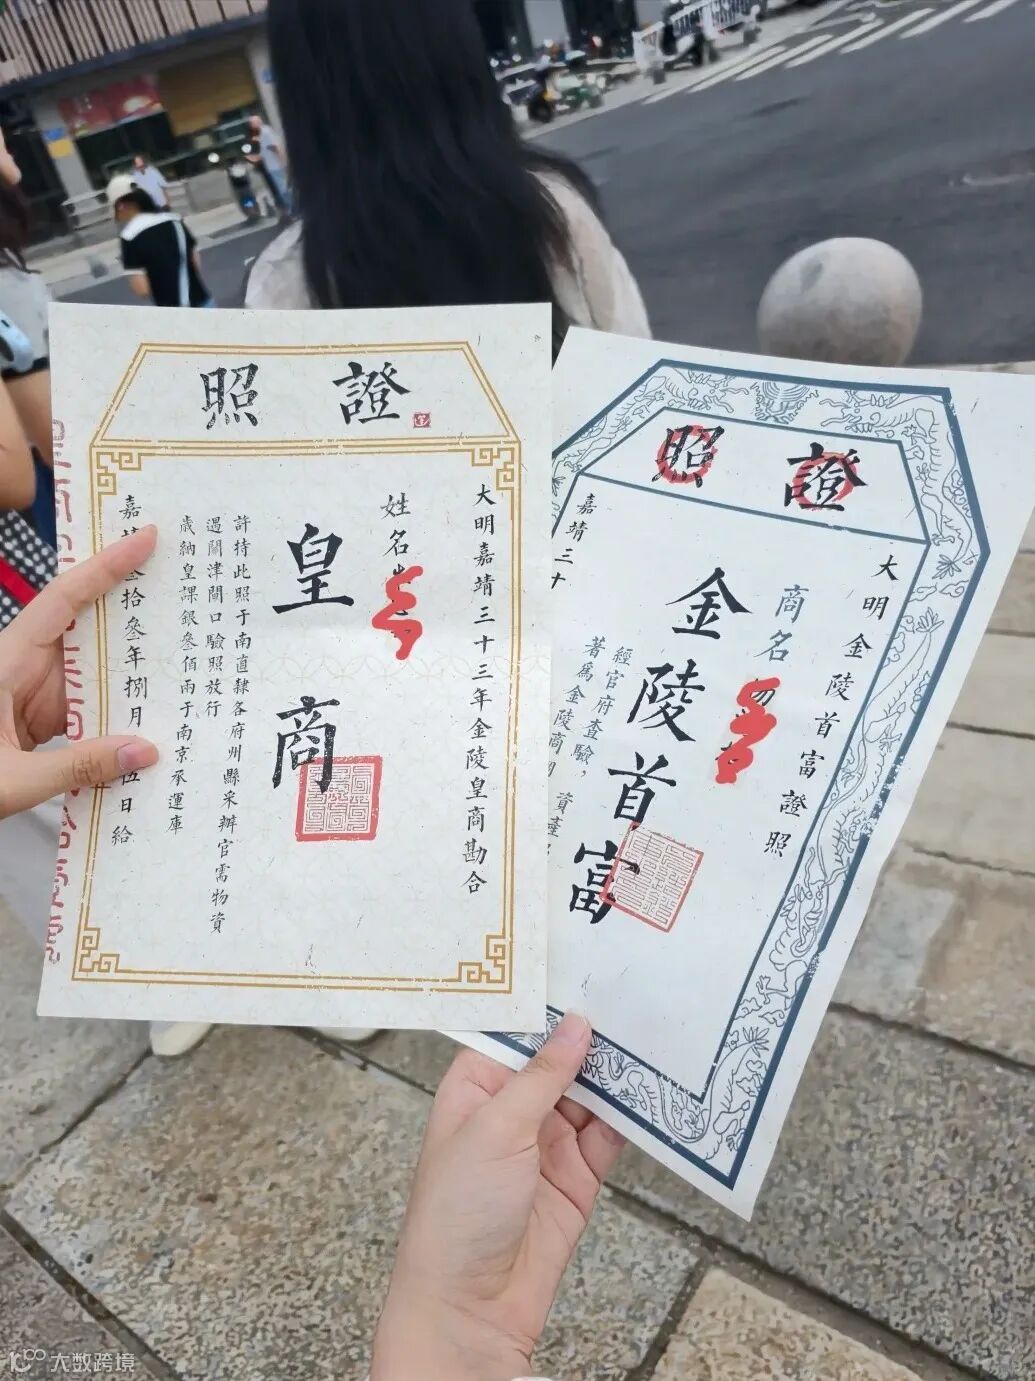 照證
大明嘉靖三十三年金陵皇商勘合
姓名
皇商
許持此照于南直隸各府州縣采辦官需物資
過關津閘口驗照放行
歲納皇課銀叄佰兩于南京承運庫
嘉 叄拾叄年捌月 伍日給
照證
大明金陵首富證照
商名
金陵首富
經官府查驗，
著爲金陵商 資產
嘉靖三十
大数跨境